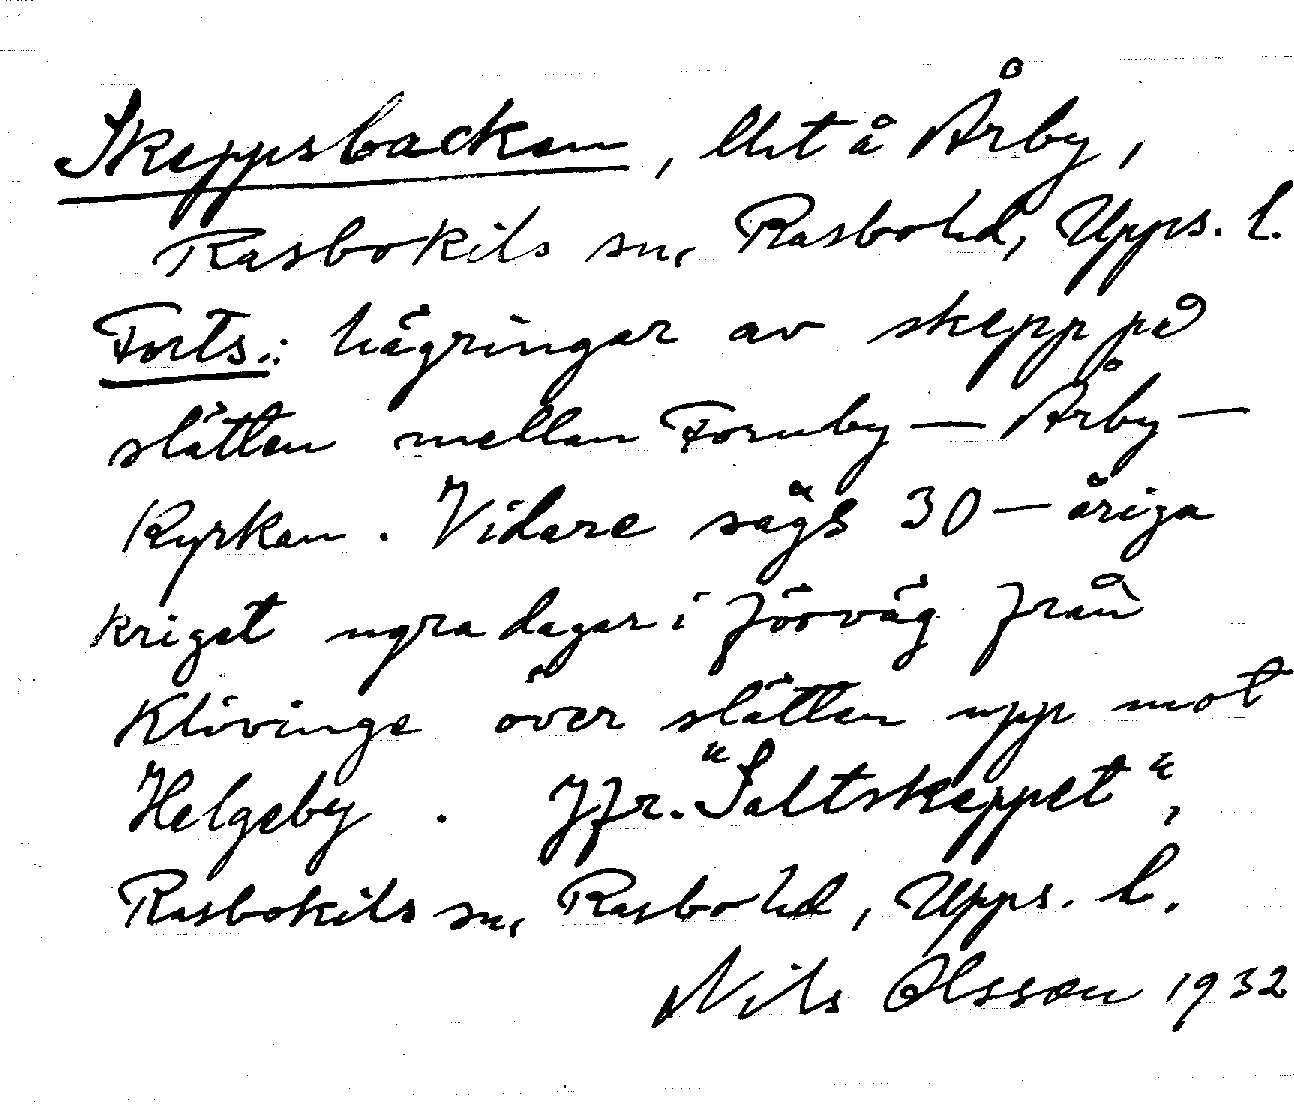 Skeppsbacken, Utå Årby,
Rasbokils sn, Rasbo hd, Upps. l.
Forts.: hägringar av skepp på
slätten mellan Fornby — Årby —
Kyrkan. Vidare sägs 30-åriga
kriget ngra dagar i förväg från
Klövinge över slätten upp mot
Helgeby. Jfr. "Saltskeppet",
Rasbokils sn, Rasbo hd, Upps. l.
Nils Olsson 1932